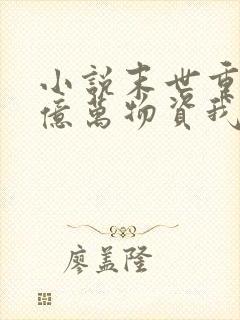 小説末世重
億萬物資我
廖盖隆